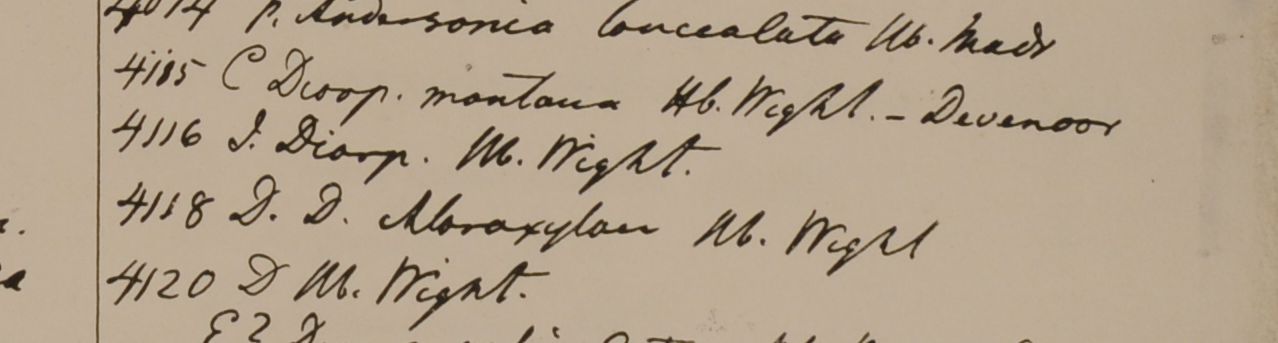 4014 P. Andersonia lanceolata Hb. Madr
4105 C Diosp. montana Hb. Wight. - Devenoor
4116 I. Diosp. Hb. Wight.
4118 D. D. Chloroxylon Hb. Wight
4120 D Hb. Wight.
E 2